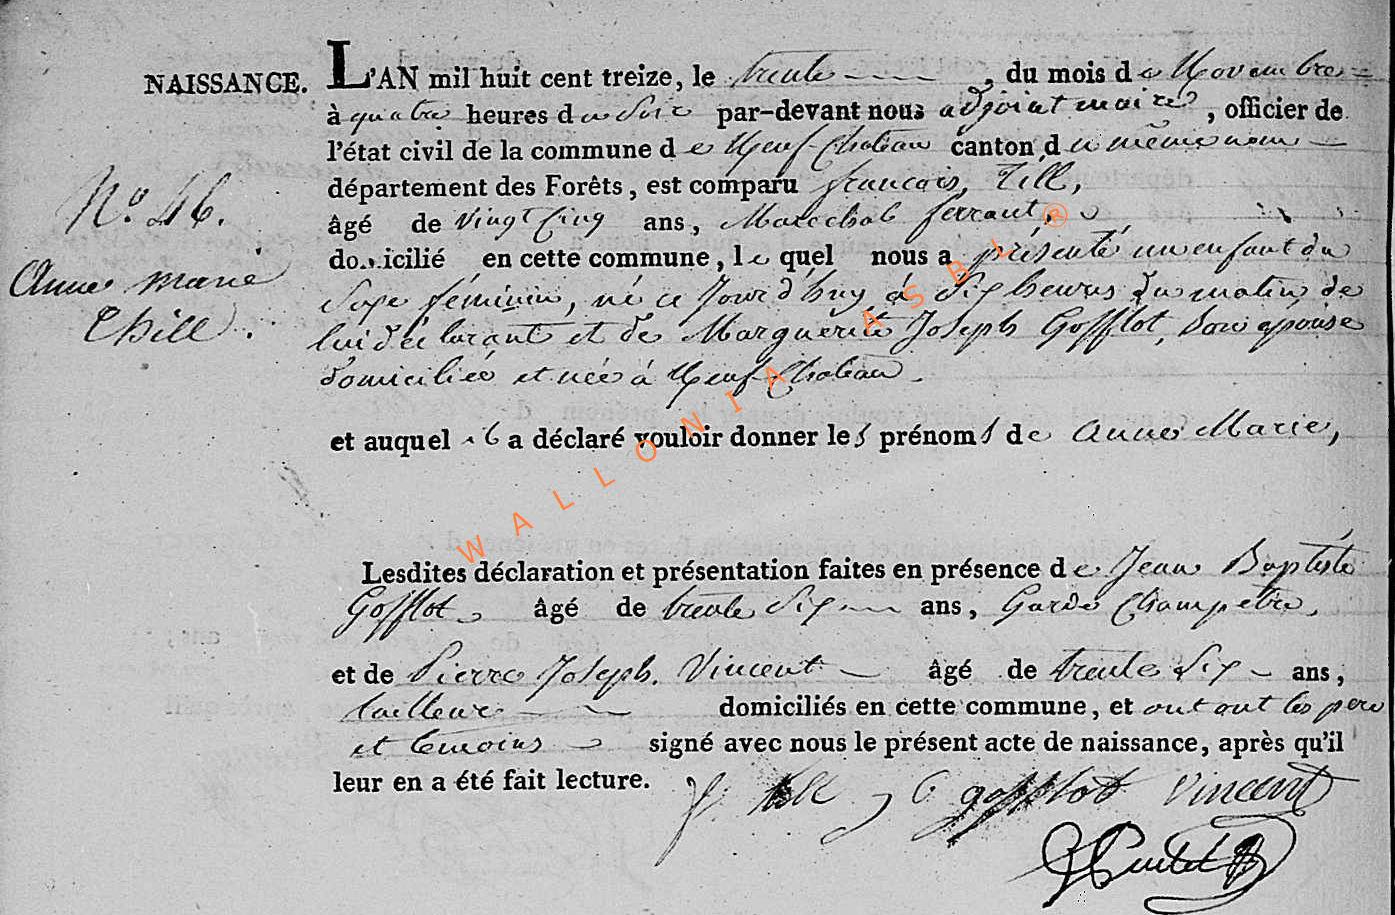 NAISSANCE. L'AN mil huit cent treize, le trente , du mois de Novembre
à quatre heures du Soir par-devant nous adjoint maire , officier de
l'état civil de la commune de Neuf-Chateau canton du même nom
département des Forêts, est comparu françois, Till,
No. 46.
âgé de vingt Cinq ans, Marechal ferrant,
Anne marie
domicilié en cette commune, le quel nous a présenté un enfant du
Sexe féminin, né ce Jourd'huy à Six heures du matin, de
Thill.
lui déclarant et de Marguerite Joseph Gofflot, Son épouse
domiciliée et née à Neuf-Chateau.
et auquel il a déclaré vouloir donner les prénoms de Anne Marie,
WALLONIA ASBL ®
Lesdites déclaration et présentation faites en présence de Jean Baptiste
Gofflot âgé de trente Six ans, Garde Champetre,
et de Pierre Joseph Vincent âgé de trente Six ans,
tailleur domiciliés en cette commune, et ont les pere
et temoins signé avec nous le présent acte de naissance, après qu'il
leur en a été fait lecture.
gofflot Vincent